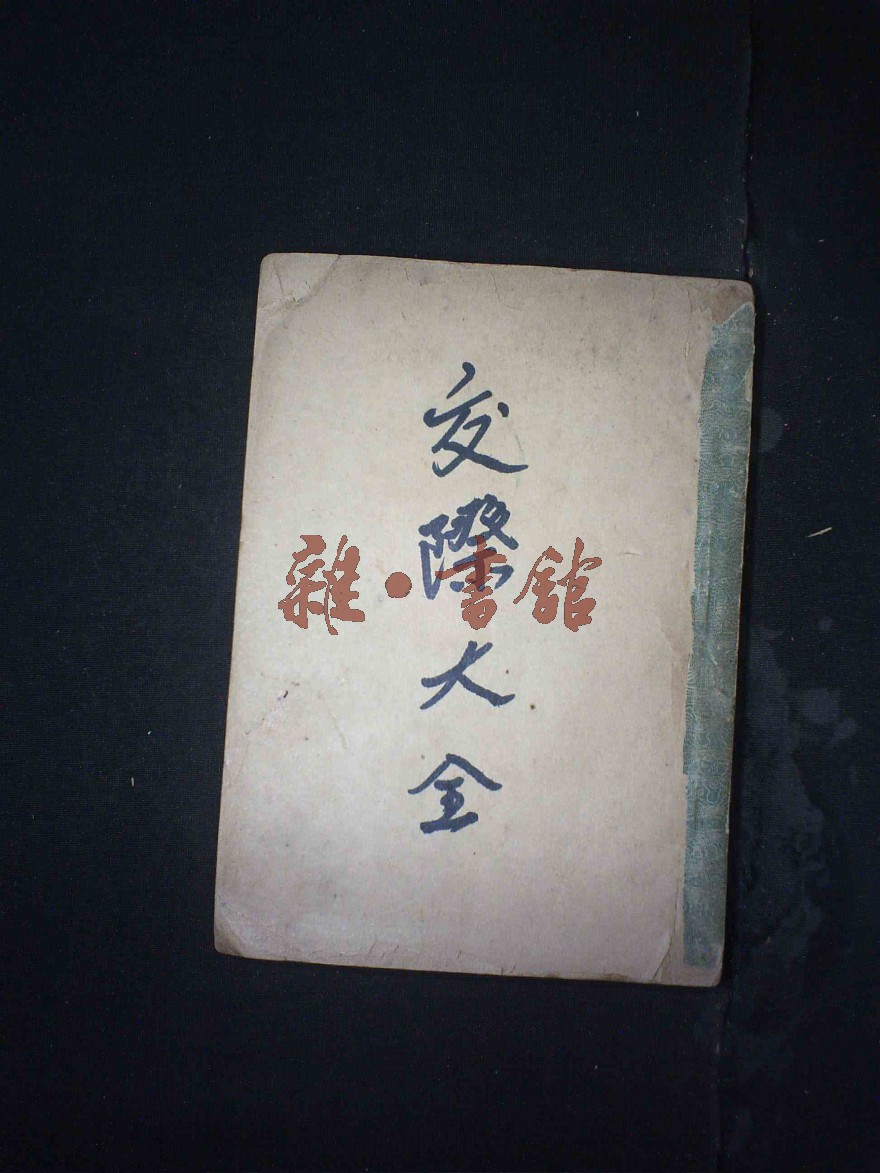 交際大全
雜·書館